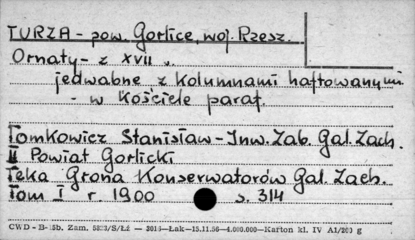 TURZA - pow. Gorlice, woj. Rzesz.
Ornaty - z XVII w.
jedwabne z kolumnami haftowanymi
- w kościele paraf.
Tomkowicz Stanisław - Inw. Zab. Gal. Zach.
II Powiat Gorlicki
Teka Grona Konserwatorów Gal. Zach.
Tom I r. 1900 s. 314
CWD - B-15b. Zam. 5223/S/Łż — 3014—Łak—15.11.56—4.000.000—Karton kl. IV A1/200 g